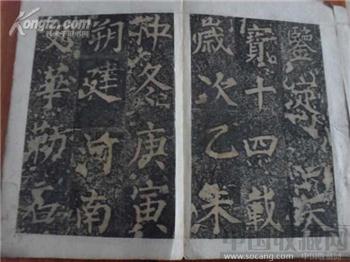 鑒天
寶十四載
歲次乙未
仲冬庚寅
朔建河南
華勒石
中国收藏网
www.socang.com